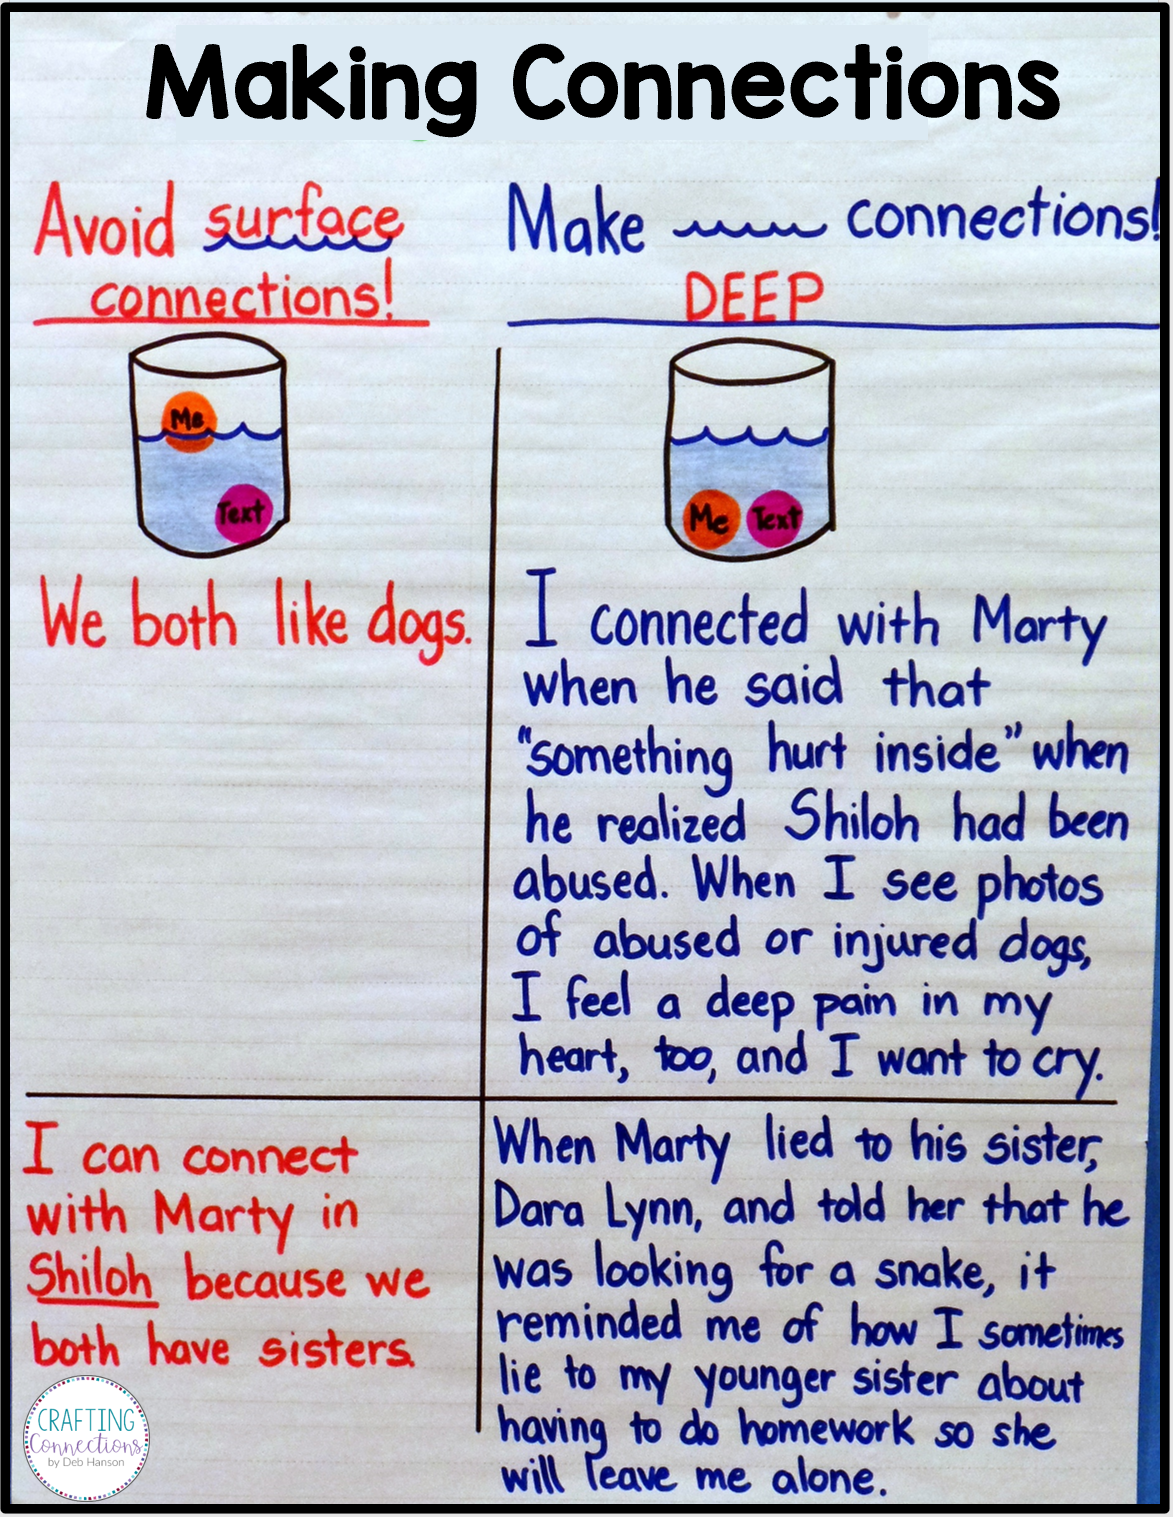 Making Connections
Avoid surface
connections!
Make connections!
DEEP
Me
Text
Me
Text
We both like dogs.
I connected with Marty
when he said that
"something hurt inside" when
he realized Shiloh had been
abused. When I see photos
of abused or injured dogs,
I feel a deep pain in my
heart, too, and I want to cry.
I can connect
with Marty in
Shiloh because we
both have sisters.
When Marty lied to his sister,
Dara Lynn, and told her that he
was looking for a snake, it
reminded me of how I sometimes
lie to my younger sister about
having to do homework so she
will leave me alone.
CRAFTING
Connections
by Deb Hanson